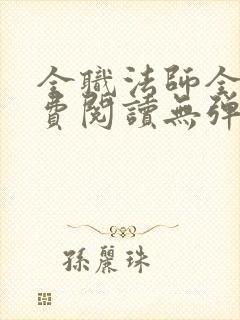 全職法師全
費閱讀無彈
孫麗珠